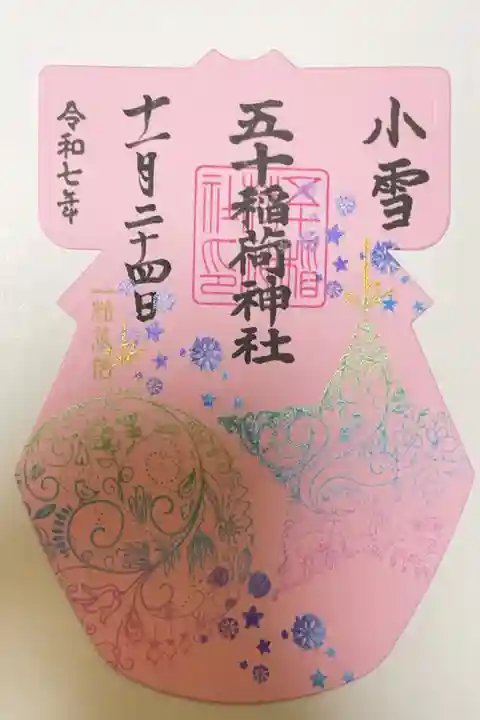 小雪
五十稲荷神社
十一月二十四日
一粒萬倍
令和七年